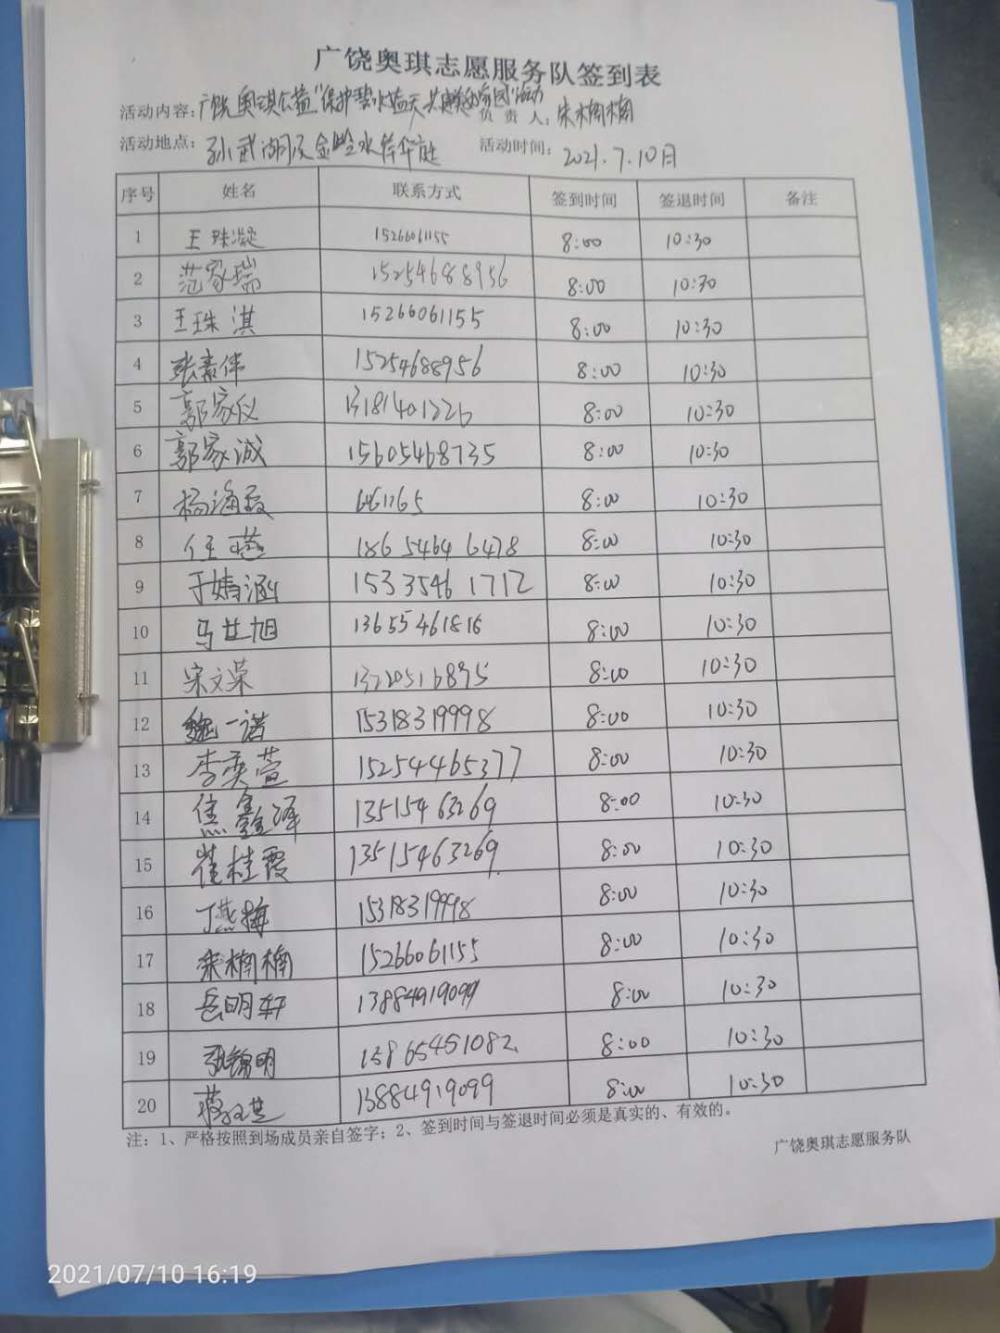 广饶奥琪志愿服务队签到表
活动内容：广饶奥琪公益"保护碧水蓝天 共建美丽家园"活动 负责人：宋楠楠
活动地点：孙武湖及金岭水岸华庭 活动时间：2021.7.10日
序号 姓名 联系方式 签到时间 签退时间 备注
1 王珠凝 15266061155 8:00 10:30
2 范家瑞 15254688956 8:00 10:30
3 王珠淇 15266061155 8:00 10:30
4 张素伟 15254688956 8:00 10:30
5 郭家仪 13181401226 8:00 10:30
6 郭家诚 15605468735 8:00 10:30
7 杨海霞 6461265 8:00 10:30
8 任燕 18654646478 8:00 10:30
9 于婧涵 15335461712 8:00 10:30
10 马世旭 13655461816 8:00 10:30
11 宋文荣 13220516895 8:00 10:30
12 魏一诺 15318319998 8:00 10:30
13 李奕萱 15254465377 8:00 10:30
14 焦鑫泽 13515463269 8:00 10:30
15 崔桂霞 13515463269 8:00 10:30
16 丁燕梅 15318319998 8:00 10:30
17 宋楠楠 15266061155 8:00 10:30
18 岳明轩 13884919099 8:00 10:30
19 张锦明 13865451082 8:00 10:30
20 13884919099 8:00 10:30
注：1、严格按照到场成员亲自签字；2、签到时间与签退时间必须是真实的、有效的。
广饶奥琪志愿服务队
2021/07/10 16:19